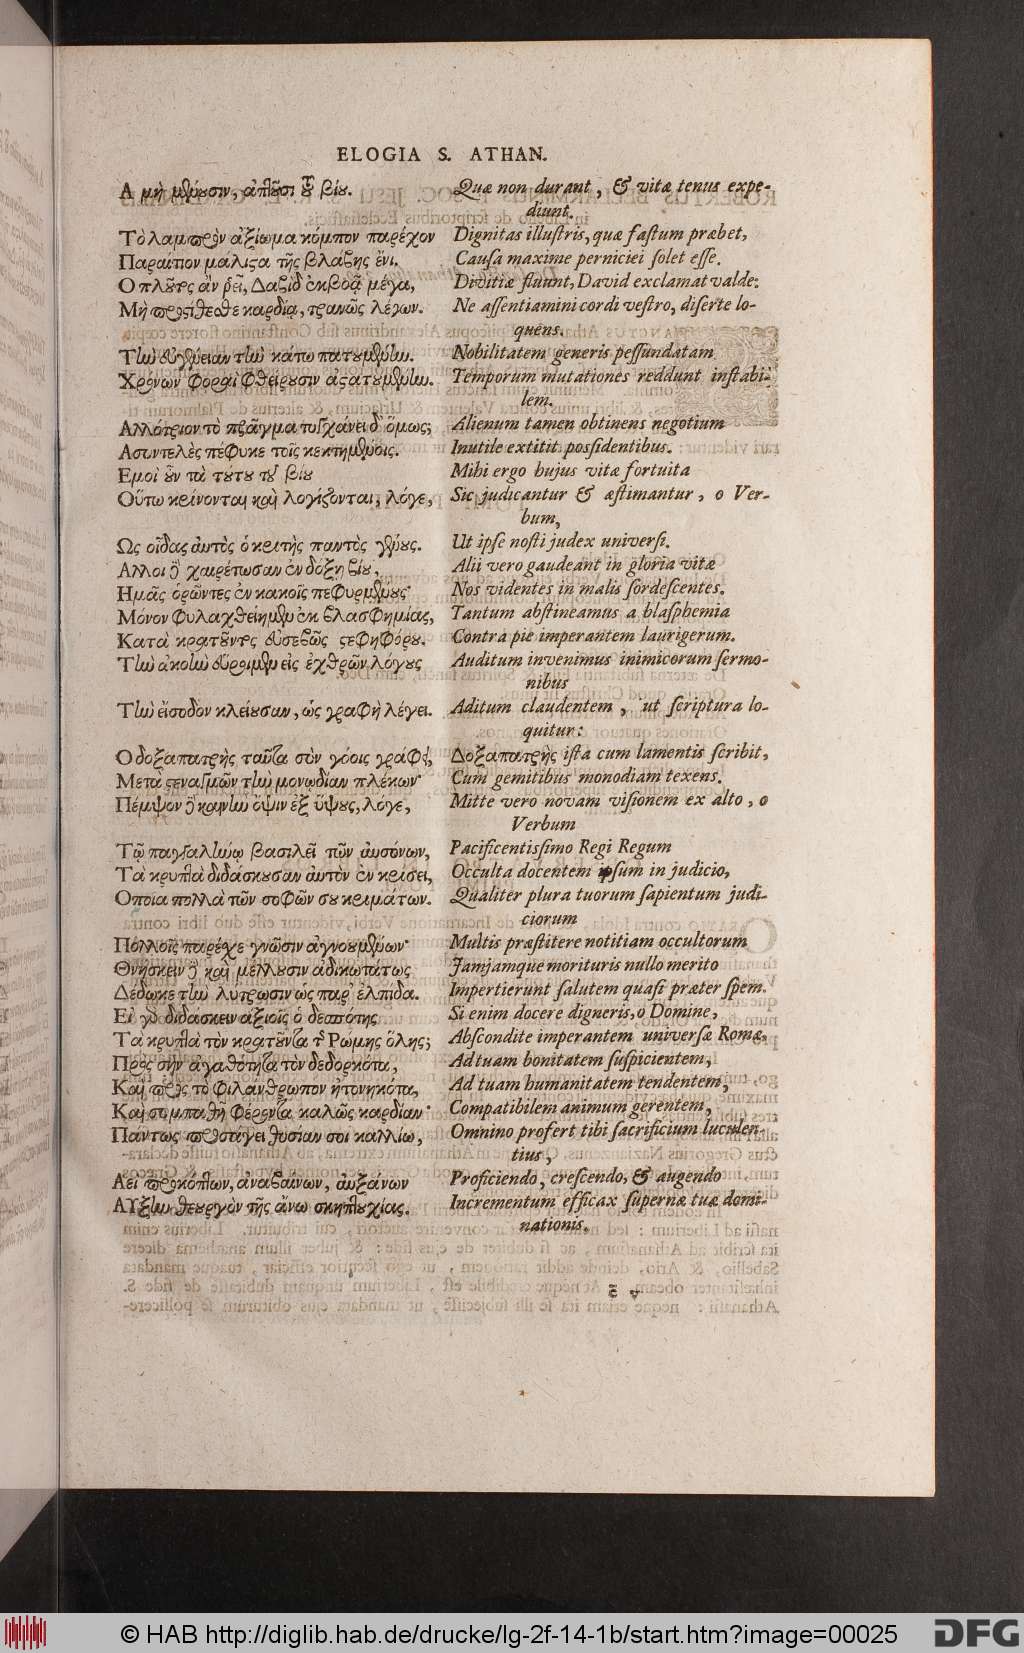 ELOGIA S. ATHAN.
Α μὴ μένουσιν, ἀπλοῦσι τοῦ βίου.
Τὸ λαμπρὸν ἀξίωμα κόμπον παρέχον
Παραίτιον μάλιστα τῆς βλάβης ἔνι.
Ο πλοῦτος ἂν ῥεῖ, Δαβὶδ ἐκβοᾷ μέγα,
Μὴ προστίθεσθε καρδίᾳ, τρανῶς λέγων.
Τὴν εὐγένειαν τὴν κάτω πατουμένην.
Χρόνων φοραὶ φθείρουσιν ἀστατουμένην.
Αλλότριον τὸ πρᾶγμα τυγχάνει δ' ὅμως;
Ασυντελὲς πέφυκε τοῖς κεκτημένοις.
Εμοὶ οὖν τὰ τούτου τοῦ βίου
Οὕτω κρίνονται καὶ λογίζονται, λόγε,
Ως οἶδας αὐτὸς ὁ κριτὴς παντὸς γένους.
Αλλοι δὲ χαιρέτωσαν ἐν δόξῃ βίου,
Ημᾶς ὁρῶντες ἐν κακοῖς πεφυρμένους·
Μόνον φυλαχθείημεν ἐκ βλασφημίας,
Κατὰ κρατοῦντος εὐσεβῶς στεφηφόρου.
Τὴν ἀκοὴν εὕροιμεν εἰς ἐχθρῶν λόγους
Τὴν εἴσοδον κλείουσαν, ὡς γραφὴ λέγει.
Ο δοξαπατρὴς ταῦτα σὺν γόοις γράφει,
Μετὰ στεναγμῶν τὴν μονῳδίαν πλέκων·
Πέμψον δὲ καινὴν ὄψιν ἐξ ὕψους, λόγε,
Τῷ παγγαλήνῳ βασιλεῖ τῶν αὐσόνων,
Τὰ κρυπτὰ διδάσκουσαν αὐτὸν ἐν κρίσει,
Οποῖα πολλὰ τῶν σοφῶν σου κριμάτων.
Πολλοῖς παρέσχε γνῶσιν ἀγνοουμένων·
Θνήσκειν δὲ καὶ μέλλουσιν ἀδικωτάτως
Δέδωκε τὴν λύτρωσιν ὡς παρ' ἐλπίδα.
Εἰ γὰρ διδάσκειν ἀξιοῖς ὁ δεσπότης
Τὰ κρυπτὰ τὸν κρατοῦντα τῆς Ρώμης ὅλης;
Πρὸς σὴν ἀγαθότητα τὸν δεδορκότα,
Καὶ πρὸς τὸ φιλάνθρωπον ἠτονηκότα,
Καὶ συμπαθῆ φέροντα καλῶς καρδίαν·
Πάντως προσάγει θυσίαν σοι καλλίω,
Αεὶ προκόπτων, ἀναβαίνων, αὐξάνων
Αὔξην θεουργὸν τῆς ἄνω σκηπτουχίας.
Quæ non durant, & vitæ tenus expe-
diunt.
Dignitas illustris, quæ fastum præbet,
Causa maxime perniciei solet esse.
Divitiæ fluunt, David exclamat valde:
Ne assentiamini cordi vestro, diserte lo-
quens.
Nobilitatem generis pessundatam
Temporum mutationes reddunt instabi-
lem.
Alienum tamen obtinens negotium
Inutile extitit possidentibus.
Mihi ergo hujus vitæ fortuita
Sic judicantur & æstimantur, o Ver-
bum,
Ut ipse nosti judex universi.
Alii vero gaudeant in gloria vitæ
Nos videntes in malis sordescentes.
Tantum abstineamus a blasphemia
Contra pie imperantem laurigerum.
Auditum invenimus inimicorum sermo-
nibus
Aditum claudentem, ut scriptura lo-
quitur:
Δοξαπατρὴς ista cum lamentis scribit,
Cum gemitibus monodiam texens.
Mitte vero novam visionem ex alto, o
Verbum
Pacificentissimo Regi Regum
Occulta docentem ipsum in judicio,
Qualiter plura tuorum sapientum judi-
ciorum
Multis præstitere notitiam occultorum
Jamjamque morituris nullo merito
Impertierunt salutem quasi præter spem.
Si enim docere digneris, o Domine,
Abscondite imperantem universæ Romæ,
Ad tuam bonitatem suspicientem,
Ad tuam humanitatem tendentem,
Compatibilem animum gerentem,
Omnino profert tibi sacrificium luculen-
tius,
Proficiendo, crescendo, & augendo
Incrementum efficax supernæ tuæ domi-
nationis.
© HAB http://diglib.hab.de/drucke/lg-2f-14-1b/start.htm?image=00025
DFG